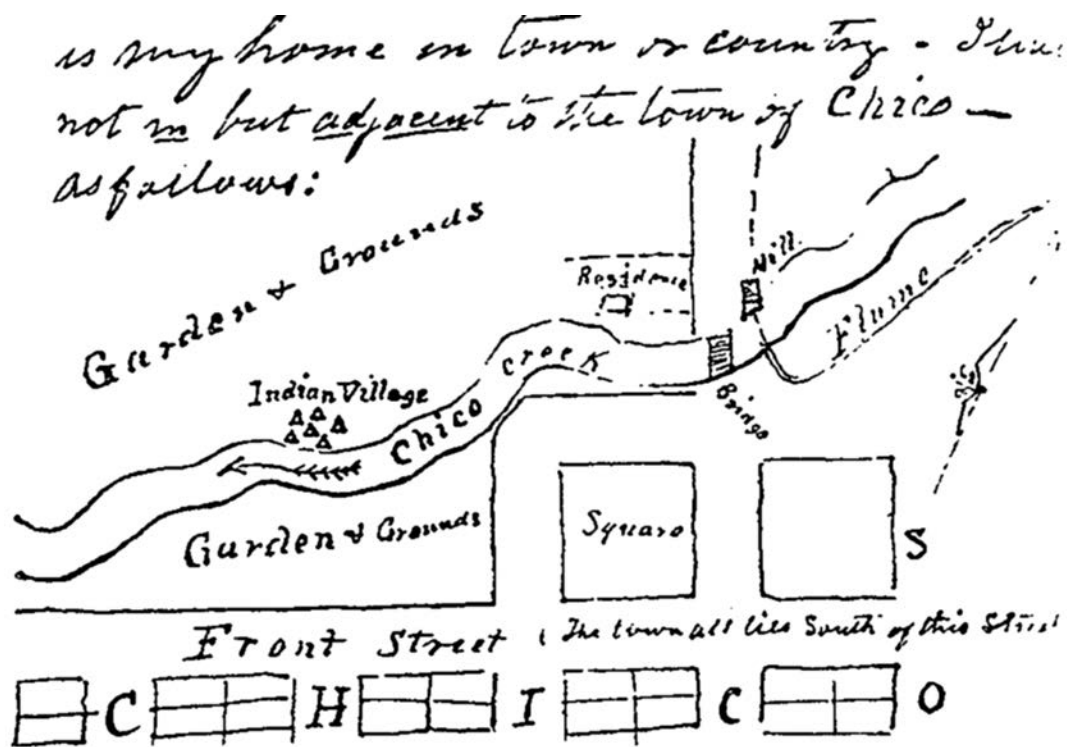 is my home in town or country - I live
not in but adjacent to the town of Chico —
as follows:
Garden & Grounds
Residence
Mill
Flume
Creek
Bridge
Indian Village
Chico
Garden & Grounds
Square
S
Front Street ( The town all lies South of this Street
C H I C O